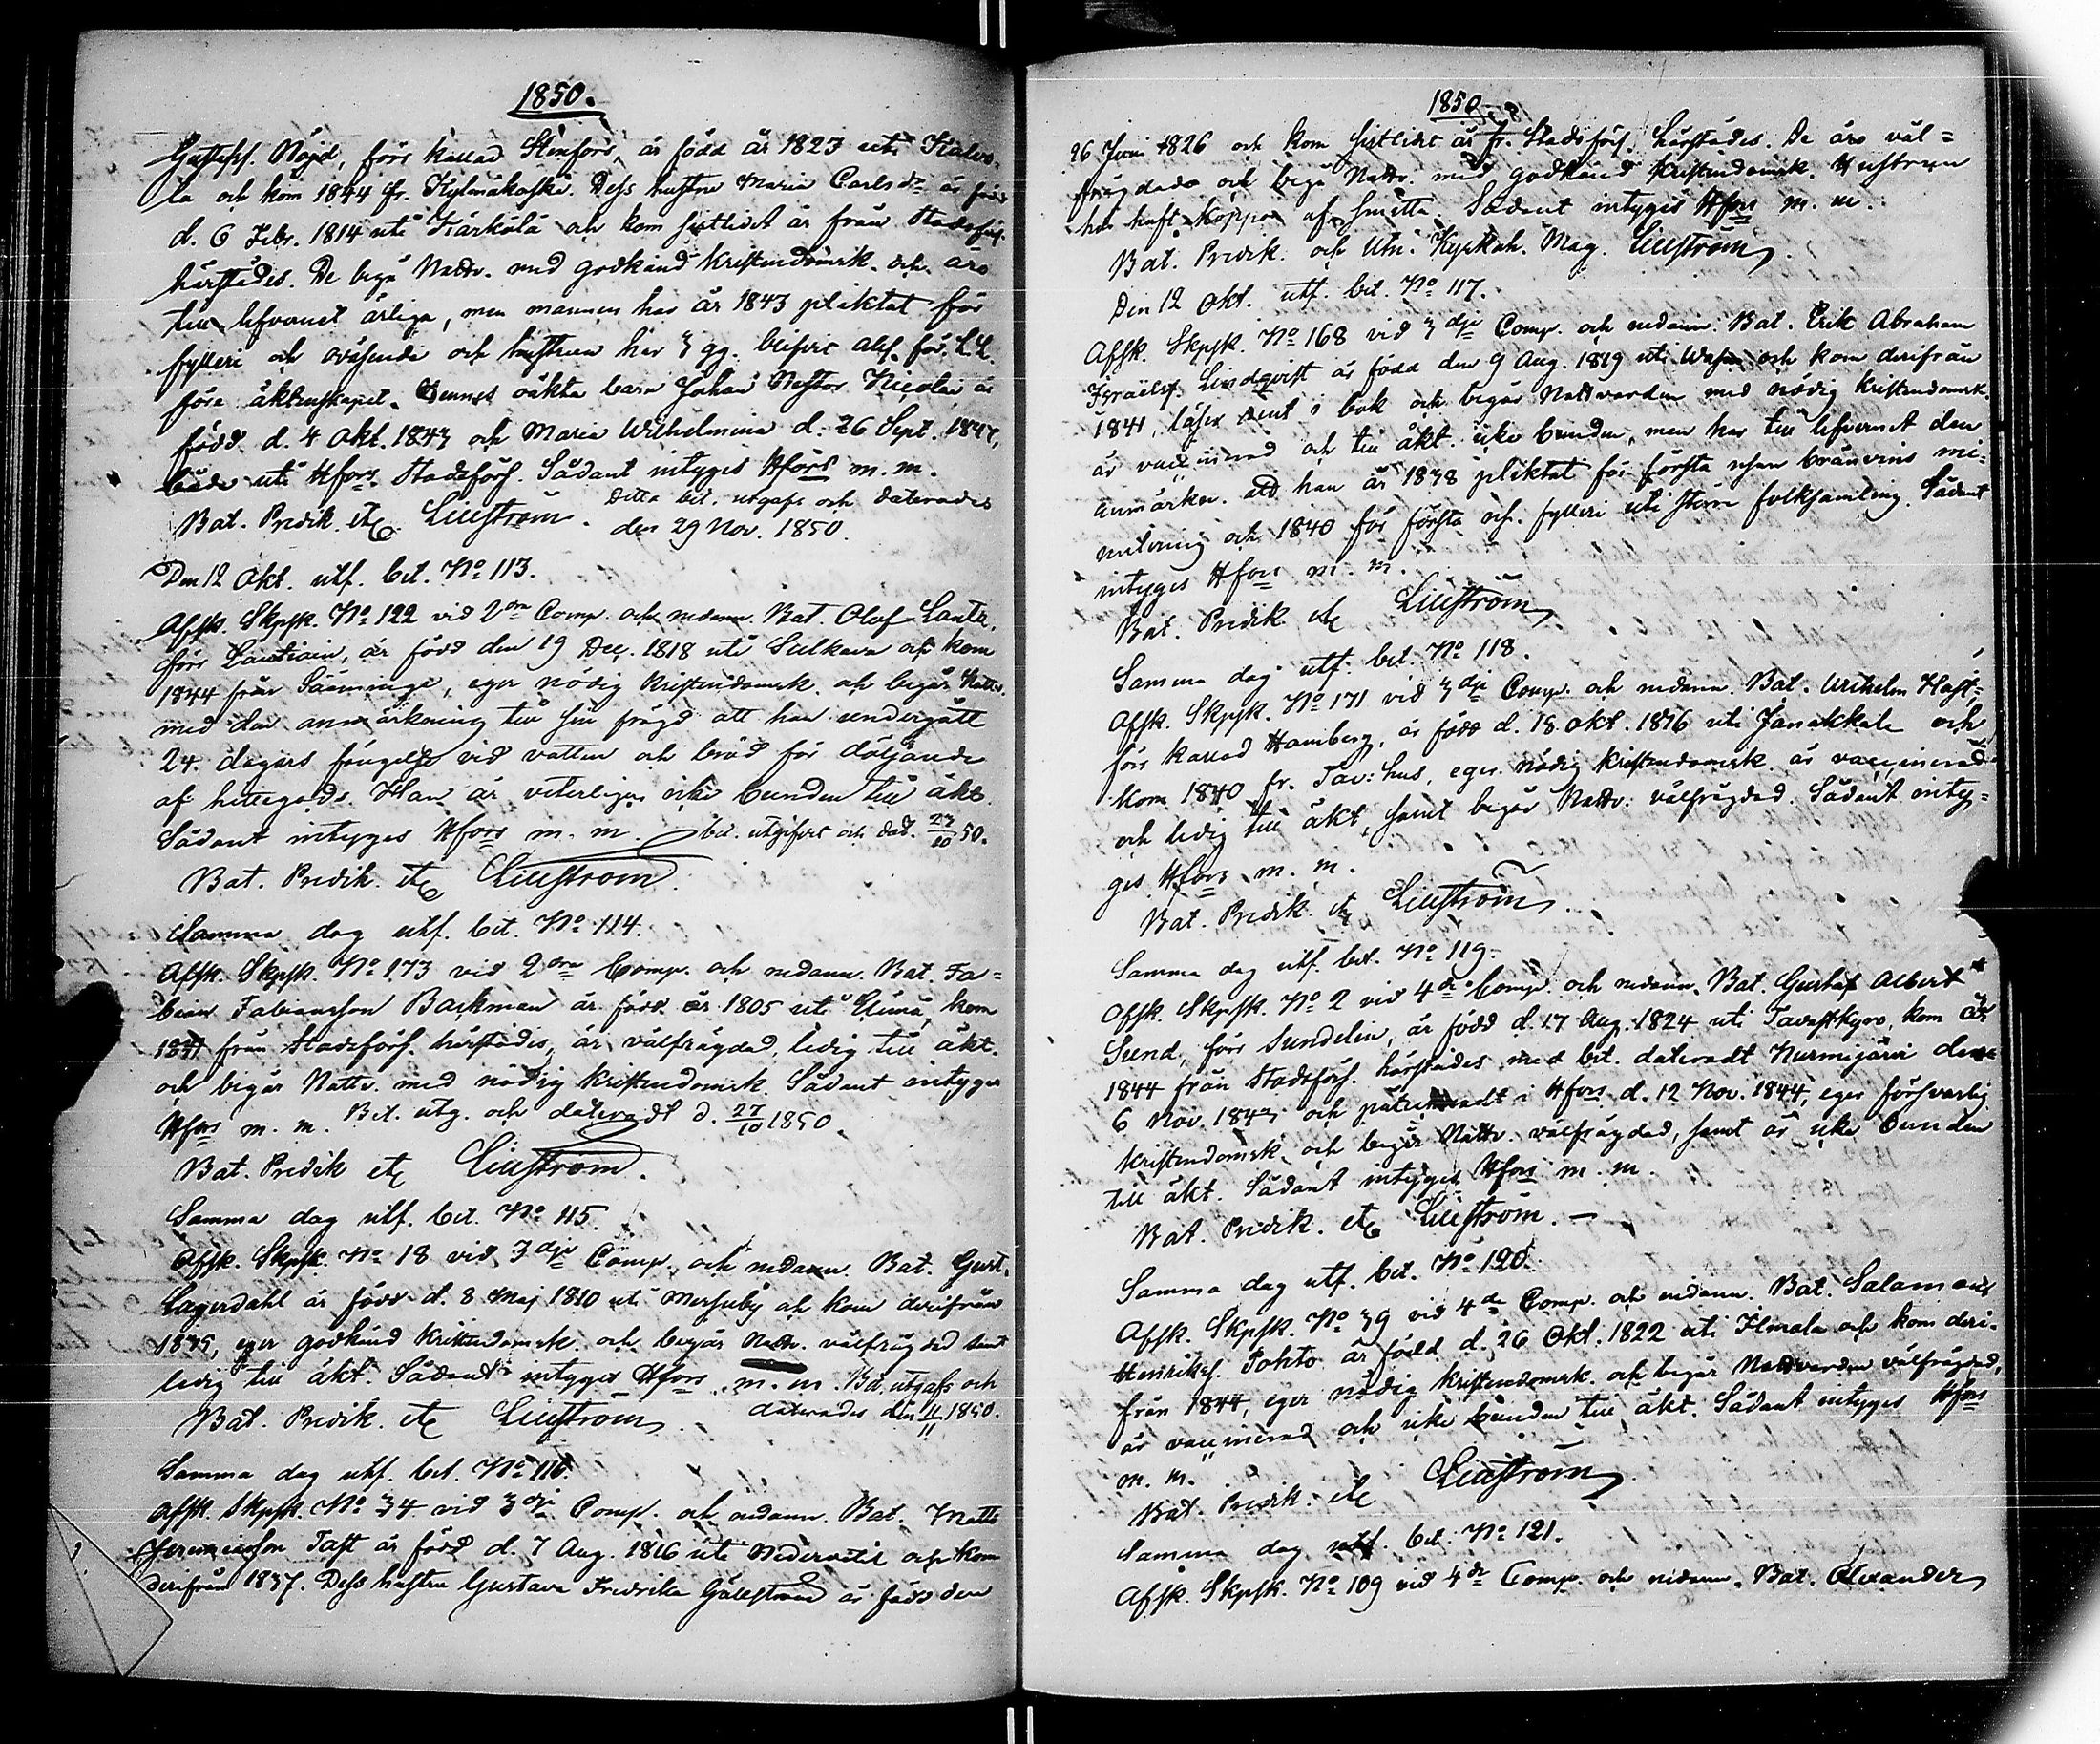 1850.
Gustafss. Nöjd, förr kallad Stenfors, är född år 1823 uti Kalvo-
la och kom 1844 fr. Kylmäkoski. Dess hustru Maria Carlsdr är född
d. 6 Febr. 1814 uti Kärkölä och kom sistlidet år från Stadsförs.
härstädes. De begå Nattv. med godkänd kristendomsk. och äro
till lefvernet ärliga, men mannen har år 1843 pliktat för
fylleri och oväsende och hustrun har 3 gg. blifvit abs. för. L.L.
före äktenskapet. Hennes oäkta barn Johan Nestor Nicolai är
född d. 4 Okt. 1843 och Maria Wilhelmina d. 26 Sept. 1847,
både uti Hfors Stadsförs. Sådant intyges Hfors m. m.
Bat. Predik. etc Liliestrom. Detta bet. utgafs och daterades
den 29 Nov. 1850.
Den 12 Okt. utf. bet. No 113.
Afsk. Skpsk. No 122 vid 2dra Comp. och nedann. Bat. Olof Lanta,
förr Lautiain, är född den 19 Dec. 1818 uti Sulkava och kom
1844 från Sääminge, eger nödig kristendomsk. och begår Nattv.
med den anmärkning till sin frägd att han undergått
24 dagars fängelse vid vatten och bröd för döljande
af hittegods. Han är veterligen icke bunden till äkt.
Sådant intyges Hfors m. m. bet. utgifvit och dat. 23/10 50.
Bat. Predik. etc Liliestrom.
Samma dag utf. bet. No 114.
Afsk. Skpsk. No 173 vid 2dra Comp. och nedann. Bat. Fa-
bian Fabiansson Backman är född år 1805 uti kom
1841 från Stadsförs. härstädes, är välfrägdad, ledig till äkt.
och begår Nattv. med nödig kristendomsk. Sådant intyges
Hfors m. m. Bet. utg. och dateradt d. 27/10 1850.
Bat. Predik etc Liliestrom.
Samma dag utf. bet. No 115.
Afsk. Skpsk. No 18 vid 3dje Comp. och nedann. Bat. Gust.
Lagerdahl är född d. 8 Maj 1810 uti Messuby och kom derifrån
1835, eger godkänd kristendomsk. och begår Nattv. välfrägdad samt
ledig till äkt. Sådant intyges Hfors m. m. Bet. utgafs och
Bat. Predik. etc Liliestrom. daterades den 11/11 1850.
Samma dag utf. bet. No 116.
Afsk. Skpsk. No 34 vid 3dje Comp. och nedann. Bat. Matts
Jeremiasson Taft är född d. 7 Aug. 1816 uti Nedervetil och kom
derifrån 1837. Dess hustru Gustava Fredrika Gällstrand är född den
1850
26 Juni 1826 och kom sistlidet år fr. Stadsförs. härstädes. De äro väl-
frägdade och begå Nattv. med godkänd kristendomsk. Hustrun
har haft koppor af smitta. Sådant intyges Hfors m. m.
Bat. Predik. och Utn. Kyrkoh. Mag. Liliestrom
Den 12 Okt. utf. bet. No 117.
Afsk. Skpsk. No 168 vid 3dje Comp. och nedann. Bat. Erik Abraham
Israelss. Lindqvist är född den 9 Aug. 1819 uti Wasa och kom derifrån
1841, läser rent i bok och begår Nattvarden med nödig kristendomsk.
är vaccinerad och till äkt. icke bunden, men har till lefvernet den
anmärkn. att han år 1838 pliktat för första resan bränvins mi-
nutering och 1840 för första res. fylleri uti större folksamling. Sådant
intyges Hfors m. m.
Bat. Predik etc Liliestrom
Samma dag utf. bet. No 118.
Afsk. Skpsk. No 171 vid 3dje Comp. och nedann. Bat. Wilhelm Hast,
förr kallad Hamberg, är född d. 18 Okt. 1816 uti Janakkala och
kom 1840 fr. Tav:hus, eger nödig kristendomsk. är vaccinerad
och ledig till äkt, samt begår Nattv. välfrägdad. Sådant inty-
ges Hfors m. m.
Bat. Predik. etc Liliestrom
Samma dag utf. bet. No 119.
Afsk. Skpsk. No 2 vid 4de Comp. och nedann. Bat. Gustaf Albert
Sund, förr Sundelin, är född d. 17 Aug. 1824 uti Tavastkyro, kom år
1844 från Stadsförs. härstädes med bet. dateradt Nurmijärvi den
6 Nov. 1843 och i Hfors d. 12 Nov. 1844, eger försvarlig
kristendomsk. och begår Nattv. välfrägdad, samt är icke bunden
till äkt. Sådant intyges Hfors m. m.
Bat. Predik. etc Liliestrom. —
Samma dag utf. bet. No 120.
Afsk. Skpsk. No 39 vid 4de Comp. och nedann. Bat. Salamon
Henrikss. Tohto är född d. 26 Okt. 1822 uti Ilmola och kom deri-
från 1844, eger nödig kristendomsk. och begår Nattvarden välfrägdad,
är vaccinerad och icke bunden till äkt. Sådant intyges Hfors
m. m.
Bat. Predik. etc Liliestrom
Samma dag utf. bet. No 121.
Afsk. Skpsk. No 109 vid 4de Comp. och nedann. Bat. Alexander